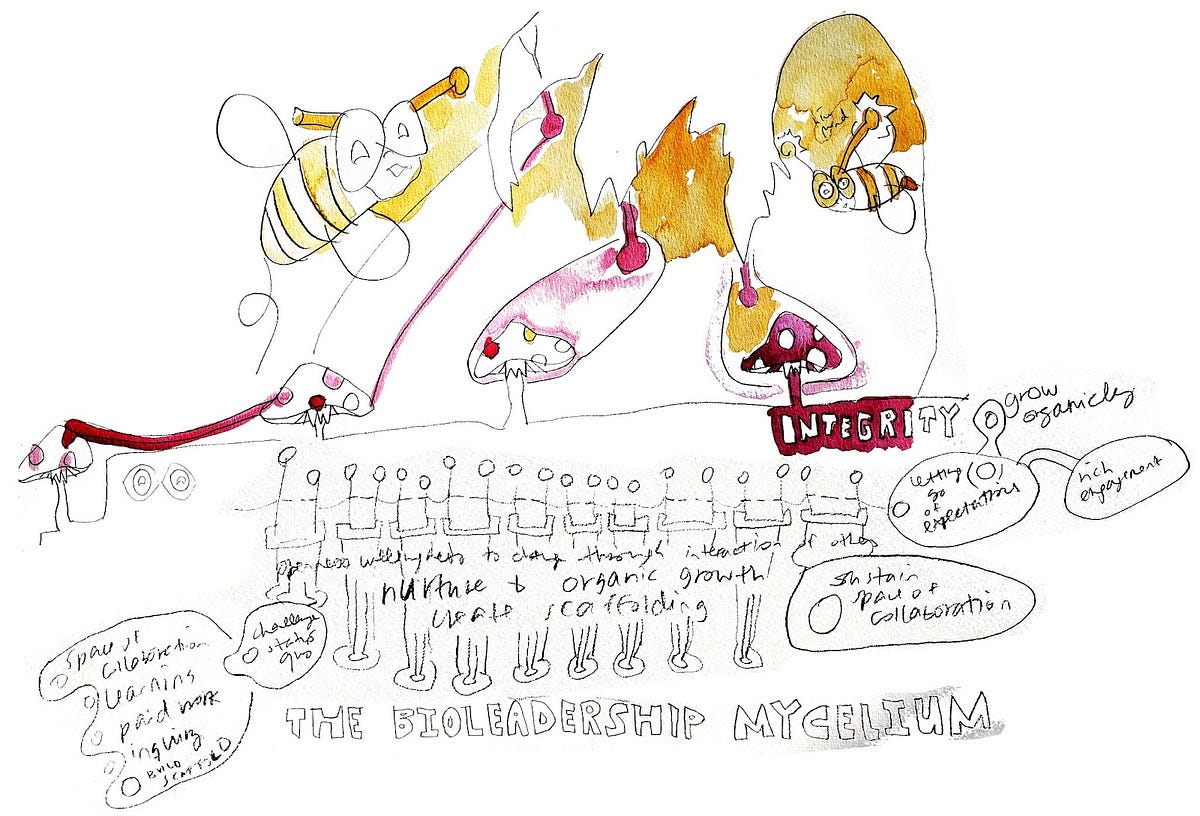 INTEGRITY
grow
organically
letting
go
of
expectations
rich
engagement
openness willingness to change through interaction of others
nurture & organic growth
create scaffolding
sustain
space of
collaboration
challenge
status
quo
space of
collaboration
learning
paid work
inquiry
BUILD
SCAFFOLD
THE BIOLEADERSHIP MYCELIUM